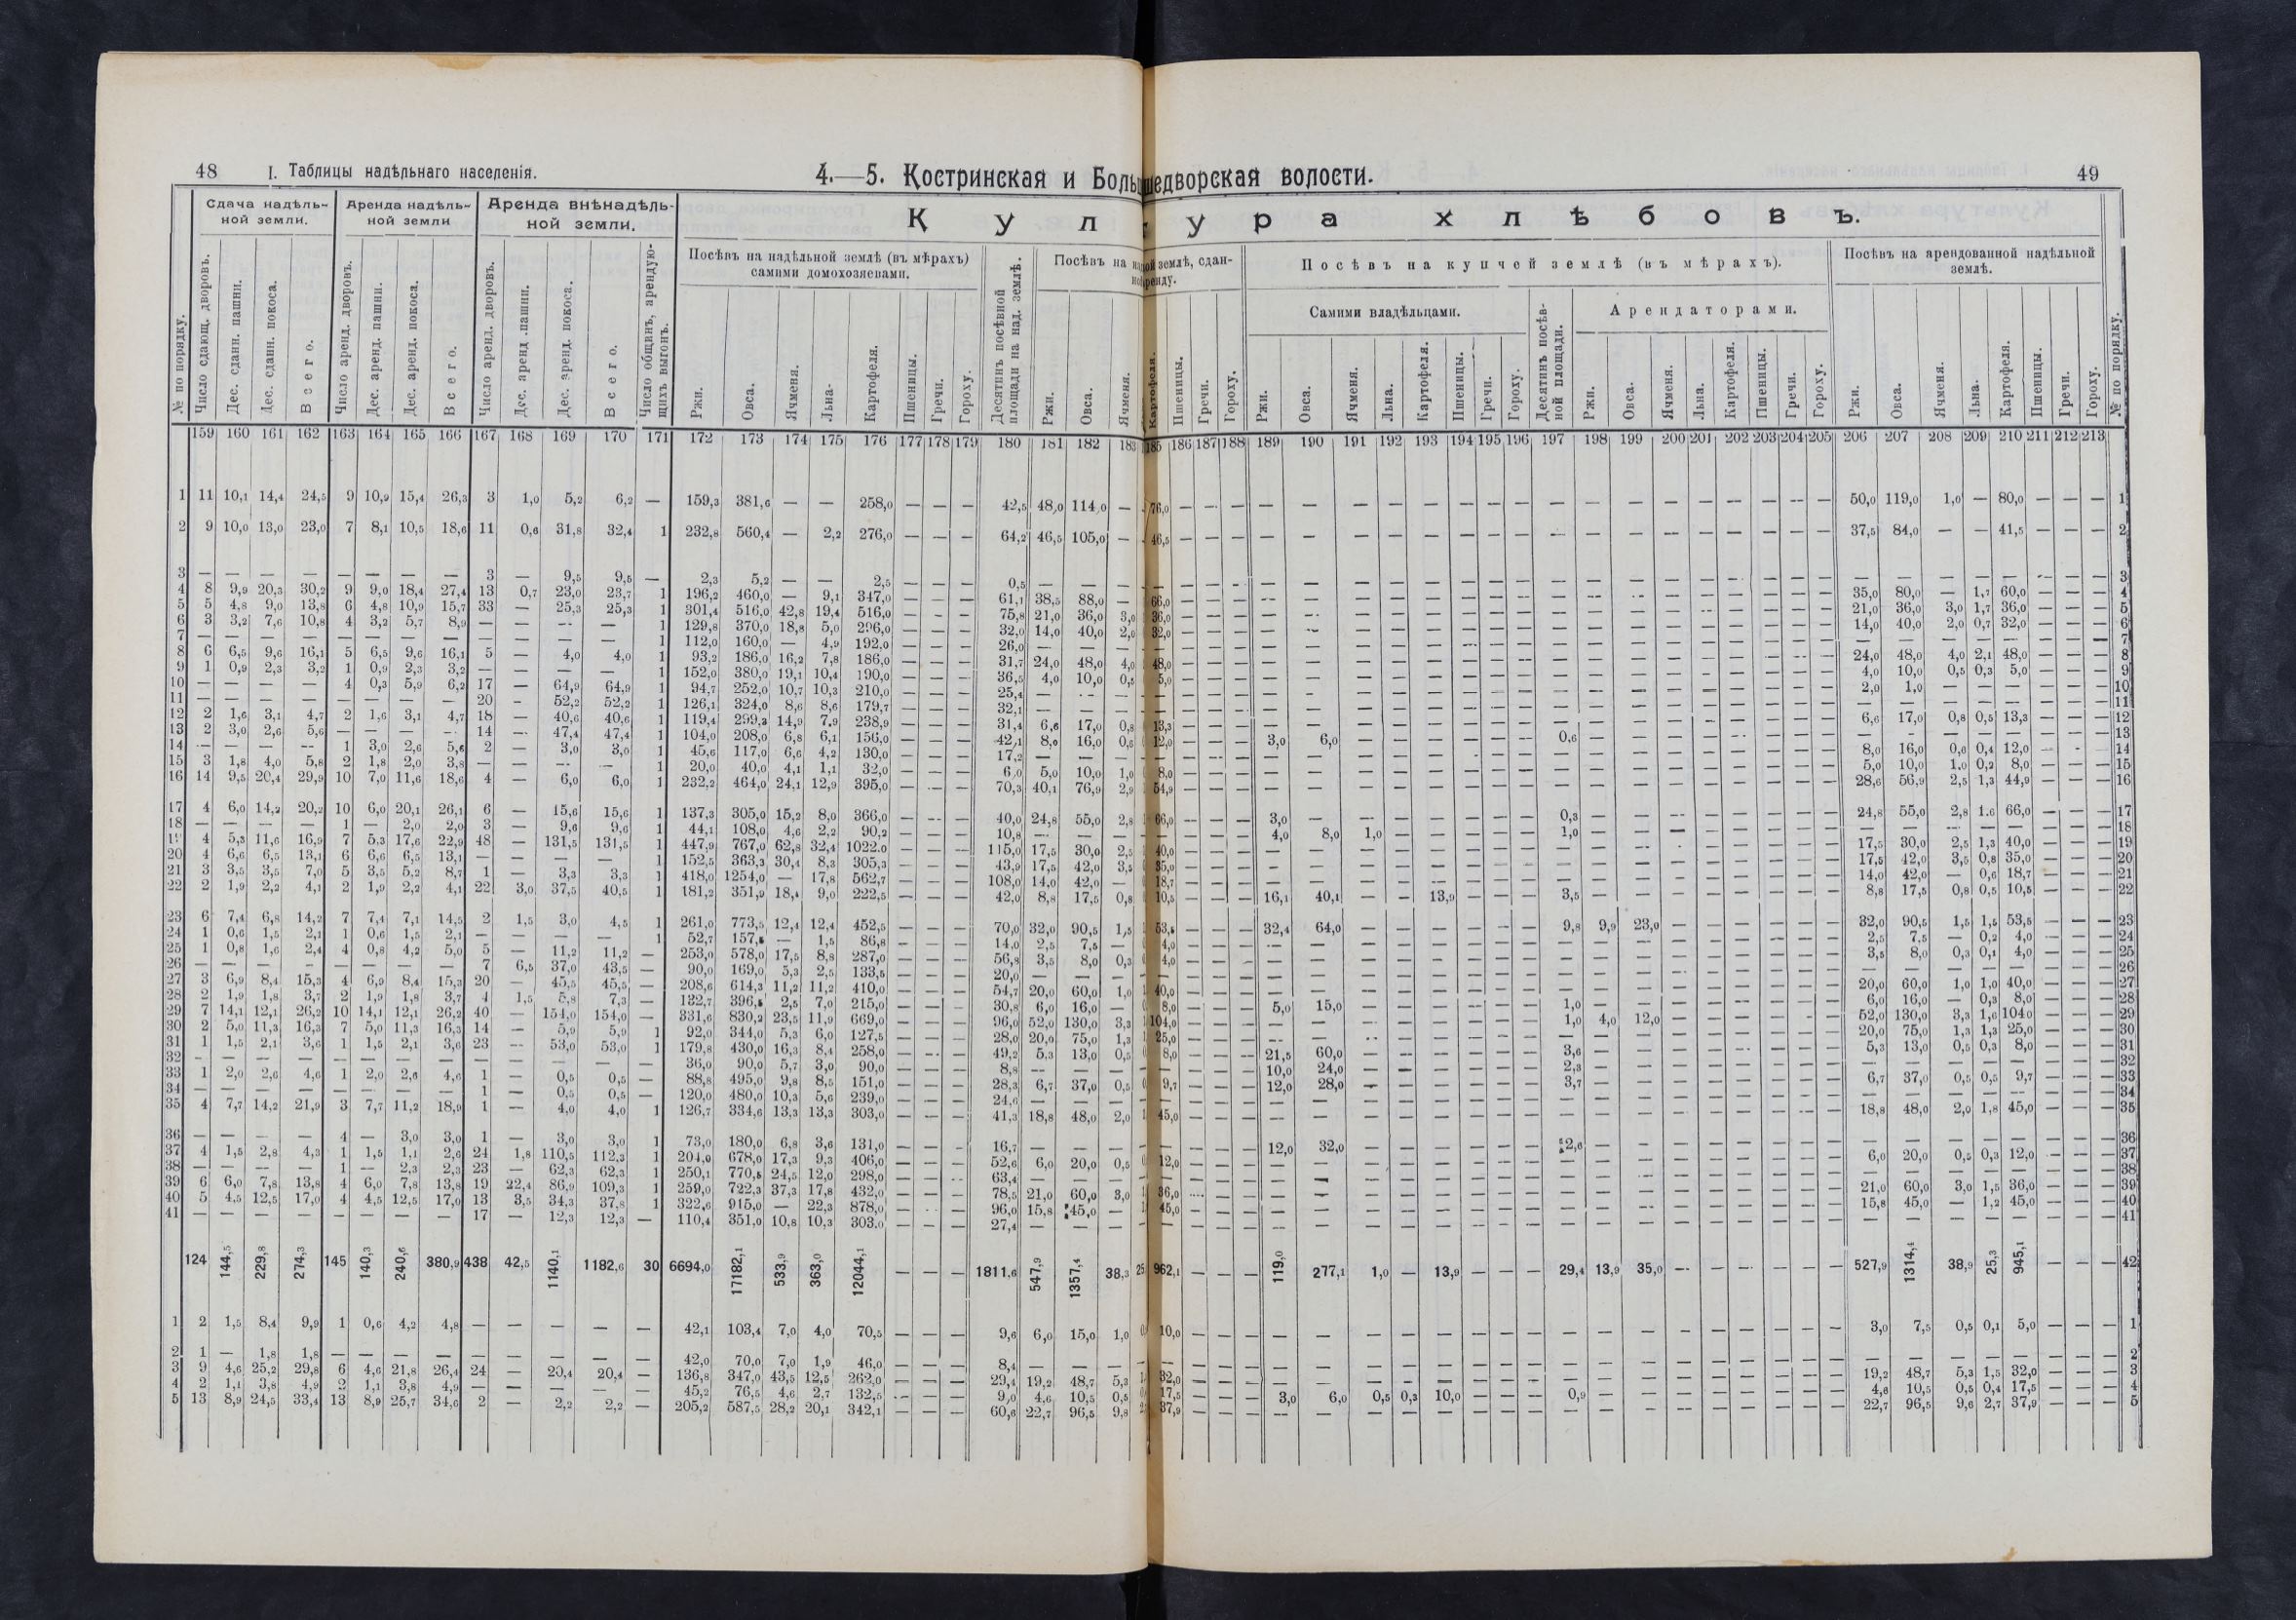 48 I. Таблицы надѣльнаго населенія. 4.—5. Костринская и Большедворская волости. 49
Сдача надѣль-
ной земли.
Аренда надѣль-
ной земли
Аренда внѣнадѣль-
ной земли.
Культура хлѣбовъ.
Посѣвъ на надѣльной землѣ (въ мѣрахъ)
самими домохозяевами.
Посѣвъ на купчей землѣ (въ мѣрахъ).
Посѣвъ на арендованной надѣльной
землѣ.
Самими владѣльцами.
Арендаторами.
№ по порядку.
Число сдающ. дворовъ.
Дес. сданн. пашни.
Дес. сданн. покоса.
Всего.
Число аренд. дворовъ.
Дес. аренд. пашни.
Дес. аренд. покоса.
Всего.
Число аренд. дворовъ.
Дес. аренд. пашни.
Дес. аренд. покоса.
Всего.
Число общинъ, арендую-
щихъ выгонъ.
Ржи. Овса. Ячменя. Льна. Картофеля. Пшеницы. Гречи. Гороху.
Десятинъ посѣвной
площади на над. землѣ.
Ржи. Овса. Ячменя. Картофеля. Пшеницы. Гречи. Гороху.
Ржи. Овса. Ячменя. Льна. Картофеля. Пшеницы. Гречи. Гороху.
Десятинъ посѣв-
ной площади.
Ржи. Овса. Ячменя. Льна. Картофеля. Пшеницы. Гречи. Гороху.
Ржи. Овса. Ячменя. Льна. Картофеля. Пшеницы. Гречи. Гороху.
№ по порядку.
159 160 161 162 163 164 165 166 167 168 169 170 171 172 173 174 175 176 177 178 179 180 181 182 183 185 186 187 188 189 190 191 192 193 194 195 196 197 198 199 200 201 202 203 204 205 206 207 208 209 210 211 212 213
1 11 10,1 14,4 24,5 9 10,9 15,4 26,3 3 1,0 5,2 6,2 — 159,3 381,6 — — 258,0 — — — 42,5 48,0 114,0 — 76,0 — — — — — — — — — — — — — — — — — — — — 50,0 119,0 1,0 — 80,0 — — — 1
2 9 10,0 13,0 23,0 7 8,1 10,5 18,6 11 0,6 31,8 32,4 1 232,8 560,4 — 2,2 276,0 — — — 64,2 46,5 105,0 — 46,5 — — — — — — — — — — — — — — — — — — — — 37,5 84,0 — — 41,5 — — — 2
3 — — — — — — — — 3 — 9,5 9,5 — 2,3 5,2 — — 2,5 — — — 0,5 — — — 3
4 8 9,9 20,3 30,2 9 9,0 18,4 27,4 13 0,7 23,0 23,7 1 196,2 460,0 — 9,1 347,0 — — — 61,1 38,5 88,0 — 66,0 — — — 35,0 80,0 — 1,7 60,0 — — — 4
5 5 4,8 9,0 13,8 6 4,8 10,9 15,7 33 — 25,3 25,3 1 301,4 516,0 42,8 19,4 516,0 — — — 75,8 21,0 36,0 3,0 36,0 — — — 21,0 36,0 3,0 1,7 36,0 — — — 5
6 3 3,2 7,6 10,8 4 3,2 5,7 8,9 — — — — 1 129,8 370,0 18,8 5,0 296,0 — — — 32,0 14,0 40,0 2,0 32,0 — — — 14,0 40,0 2,0 0,7 32,0 — — — 6
7 — — — — — — — — — — — — 1 112,0 160,0 — 4,9 192,0 — — — 26,0 — — — 7
8 6 6,5 9,6 16,1 5 6,5 9,6 16,1 5 — 4,0 4,0 1 93,2 186,0 16,2 7,8 186,0 — — — 31,7 24,0 48,0 4,0 48,0 — — — 24,0 48,0 4,0 2,1 48,0 — — — 8
9 1 0,9 2,3 3,2 1 0,9 2,3 3,2 — — — — 1 152,0 380,0 19,1 10,4 190,0 — — — 36,5 4,0 10,0 0,5 5,0 — — — 4,0 10,0 0,5 0,3 5,0 — — — 9
10 — — — — 4 0,3 5,9 6,2 17 — 64,9 64,9 1 94,7 252,0 10,7 10,3 210,0 — — — 25,4 — — — 2,0 1,0 — — — — — — 10
11 — — — — — — — — 20 — 52,2 52,2 1 126,1 324,0 8,6 8,6 179,7 — — — 32,1 — — — 11
12 2 1,6 3,1 4,7 2 1,6 3,1 4,7 18 — 40,6 40,6 1 119,4 299,3 14,9 7,9 238,9 — — — 31,4 6,6 17,0 0,8 13,3 — — — 6,6 17,0 0,8 0,5 13,3 — — — 12
13 2 3,0 2,6 5,6 — — — — 14 — 47,4 47,4 1 104,0 208,0 6,8 6,1 156,0 — — — 42,1 8,0 16,0 0,5 12,0 — — — 3,0 6,0 — — — — — — 0,6 — — — 13
14 — — — — 1 3,0 2,6 5,6 2 — 3,0 3,0 1 45,6 117,0 6,6 4,2 130,0 — — — 17,2 — — — 8,0 16,0 0,0 0,4 12,0 — — — 14
15 3 1,8 4,0 5,8 2 1,8 2,0 3,8 — — — — 1 20,0 40,0 4,1 1,1 32,0 — — — 6,0 5,0 10,0 1,0 8,0 — — — 5,0 10,0 1,0 0,2 8,0 — — — 15
16 14 9,5 20,4 29,9 10 7,0 11,6 18,6 4 — 6,0 6,0 1 232,2 464,0 24,1 12,9 395,0 — — — 70,3 40,1 76,9 2,9 54,9 — — — 28,6 56,9 2,5 1,3 44,9 — — — 16
17 4 6,0 14,2 20,2 10 6,0 20,1 26,1 6 — 15,6 15,6 1 137,3 305,0 15,2 8,0 366,0 — — — 40,0 24,8 55,0 2,8 66,0 — — — 3,0 — — — — — — — 0,3 — — — 24,8 55,0 2,8 1,6 66,0 — — — 17
18 — — — — 1 — 2,0 2,0 3 — 9,6 9,6 1 44,1 108,0 4,6 2,2 90,2 — — — 10,8 — — — 4,0 8,0 1,0 — — — — — 1,0 — — — 18
19 4 5,3 11,6 16,9 7 5,3 17,6 22,9 48 — 131,5 131,5 1 447,9 767,0 62,8 32,4 1022,0 — — — 115,0 17,5 30,0 2,5 40,0 — — — 17,5 30,0 2,5 1,3 40,0 — — — 19
20 4 6,6 6,5 13,1 6 6,6 6,5 13,1 — — — — 1 152,5 363,3 30,4 8,3 305,3 — — — 43,9 17,5 42,0 3,5 35,0 — — — 17,5 42,0 3,5 0,8 35,0 — — — 20
21 3 3,5 3,5 7,0 5 3,5 5,2 8,7 1 — 3,3 3,3 1 418,0 1254,0 — 17,8 562,7 — — — 108,0 14,0 42,0 — 18,7 — — — 14,0 42,0 — 0,6 18,7 — — — 21
22 2 1,9 2,2 4,1 2 1,9 2,2 4,1 22 3,0 37,5 40,5 1 181,2 351,9 18,4 9,0 222,5 — — — 42,0 8,8 17,5 0,8 10,5 — — — 16,1 40,1 — — 13,9 — — — 3,5 — — — 8,8 17,5 0,8 0,5 10,5 — — — 22
23 6 7,4 6,8 14,2 7 7,4 7,1 14,5 2 1,5 3,0 4,5 1 261,0 773,5 12,4 12,4 452,5 — — — 70,0 32,0 90,5 1,5 53,5 — — — 32,4 64,0 — — — — — — 9,8 9,9 23,0 — — — 32,0 90,5 1,5 1,5 53,5 — — — 23
24 1 0,6 1,5 2,1 1 0,6 1,5 2,1 — — — — 1 52,7 157,5 — 1,5 86,8 — — — 14,0 2,5 7,5 — 4,0 — — — 2,5 7,5 — 0,2 4,0 — — — 24
25 1 0,8 1,6 2,4 4 0,8 4,2 5,0 5 — 11,2 11,2 — 253,0 578,0 17,5 8,8 287,0 — — — 56,8 3,5 8,0 0,3 4,0 — — — 3,5 8,0 0,3 0,1 4,0 — — — 25
26 — — — — — — — — 7 6,5 37,0 43,5 — 90,0 169,0 5,3 2,5 133,5 — — — 20,0 — — — 26
27 3 6,9 8,4 15,3 4 6,9 8,4 15,3 20 — 45,5 45,5 — 208,6 614,3 11,2 11,2 410,0 — — — 54,7 20,0 60,0 1,0 40,0 — — — 20,0 60,0 1,0 1,0 40,0 — — — 27
28 2 1,9 1,8 3,7 2 1,9 1,8 3,7 4 1,5 5,8 7,3 — 132,7 396,5 2,5 7,0 215,0 — — — 30,8 6,0 16,0 — 8,0 — — — 5,0 15,0 — — — — — — 1,0 — — — 6,0 16,0 — 0,3 8,0 — — — 28
29 7 14,1 12,1 26,2 10 14,1 12,1 26,2 40 — 154,0 154,0 — 331,6 830,2 23,5 11,9 669,0 — — — 96,0 52,0 130,0 3,3 104,0 — — — 1,0 4,0 12,0 — — — 52,0 130,0 3,3 1,6 104,0 — — — 29
30 2 5,0 11,3 16,3 7 5,0 11,3 16,3 14 — 5,9 5,9 1 92,0 344,0 5,3 6,0 127,5 — — — 28,0 20,0 75,0 1,3 25,0 — — — 20,0 75,0 1,3 1,3 25,0 — — — 30
31 1 1,5 2,1 3,6 1 1,5 2,1 3,6 23 — 53,0 53,0 1 179,8 430,0 16,3 8,4 258,0 — — — 49,2 5,3 13,0 0,5 8,0 — — — 21,5 60,0 — — — — — — 3,6 — — — 5,3 13,0 0,5 0,3 8,0 — — — 31
32 — — — — — — — — — — — — — 36,0 90,0 5,7 3,0 90,0 — — — 8,8 — — — 10,0 24,0 — — — — — — 2,3 — — — 32
33 1 2,0 2,6 4,6 1 2,0 2,6 4,6 1 — 0,5 0,5 — 88,8 495,0 9,8 8,5 151,0 — — — 28,3 6,7 37,0 0,5 9,7 — — — 12,0 28,0 — — — — — — 3,7 — — — 6,7 37,0 0,5 0,5 9,7 — — — 33
34 — — — — — — — — 1 — 0,5 0,5 — 120,0 480,0 10,3 5,6 239,0 — — — 24,6 — — — 34
35 4 7,7 14,2 21,9 3 7,7 11,2 18,9 1 — 4,0 4,0 1 126,7 334,6 13,3 13,3 303,0 — — — 41,3 18,8 48,0 2,0 45,0 — — — 18,8 48,0 2,0 1,8 45,0 — — — 35
36 — — — — 4 — 3,0 3,0 1 — 3,0 3,0 1 73,0 180,0 6,8 3,6 131,0 — — — 16,7 — — — 12,0 32,0 — — — — — — 2,6 — — — 36
37 4 1,5 2,8 4,3 1 1,5 1,1 2,6 24 1,8 110,5 112,3 1 204,0 678,0 17,3 9,3 406,0 — — — 52,6 6,0 20,0 0,5 12,0 — — — 6,0 20,0 0,5 0,3 12,0 — — — 37
38 — — — — 1 — 2,3 2,3 23 — 62,3 62,3 1 250,1 770,5 24,5 12,0 298,0 — — — 63,4 — — — 38
39 6 6,0 7,8 13,8 4 6,0 7,8 13,8 19 22,4 86,9 109,3 1 259,0 722,3 37,3 17,8 432,0 — — — 78,5 21,0 60,0 3,0 36,0 — — — 21,0 60,0 3,0 1,5 36,0 — — — 39
40 5 4,5 12,5 17,0 4 4,5 12,5 17,0 13 3,5 34,3 37,8 1 322,6 915,0 — 22,3 878,0 — — — 96,0 15,8 45,0 — 45,0 — — — 15,8 45,0 — 1,2 45,0 — — — 40
41 — — — — — — — — 17 — 12,3 12,3 — 110,4 351,0 10,8 10,3 303,0 — — — 27,4 — — — 41
124 144,5 229,8 274,3 145 140,3 240,6 380,9 438 42,5 1140,1 1182,6 30 6694,0 17182,1 533,9 363,0 12044,1 — — — 1811,6 547,9 1357,4 38,3 962,1 — — — 119,0 277,1 1,0 — 13,9 — — — 29,4 13,9 35,0 — — — — — — 527,9 1314,4 38,9 25,3 945,1 — — — 42
1 2 1,5 8,4 9,9 1 0,6 4,2 4,8 — — — — — 42,1 103,4 7,0 4,0 70,5 — — — 9,6 6,0 15,0 1,0 10,0 — — — 3,0 7,5 0,5 0,1 5,0 — — — 1
2 1 — 1,8 1,8 — — — — — — — — — 42,0 70,0 7,0 1,9 46,0 — — — 8,4 — — — 2
3 9 4,6 25,2 29,8 6 4,6 21,8 26,4 24 — 20,4 20,4 — 136,8 347,0 43,5 12,5 262,0 — — — 29,4 19,2 48,7 5,3 32,0 — — — 19,2 48,7 5,3 1,5 32,0 — — — 3
4 2 1,1 3,8 4,9 2 1,1 3,8 4,9 — — — — — 45,2 76,5 4,6 2,7 132,5 — — — 9,0 4,6 10,5 0,5 17,5 — — — 3,0 6,0 0,5 0,3 10,0 — — — 0,9 — — — 4,6 10,5 0,5 0,4 17,5 — — — 4
5 13 8,9 24,5 33,4 13 8,9 25,7 34,6 2 — 2,2 2,2 — 205,2 587,5 28,2 20,1 342,1 — — — 60,6 22,7 96,5 9,8 37,9 — — — 22,7 96,5 9,6 2,7 37,9 — — — 5